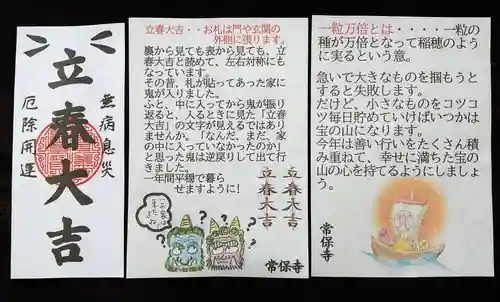 立春大吉
無病息災
厄除開運
立春大吉・・お札は門や玄関の
外側に張ります。
裏から見ても表から見ても、立
春大吉と読めて、左右対称にも
なっています。
その昔、札が貼ってあった家に
鬼が入りました。
ふと、中に入ってから鬼が振り
返ると、入るときに見た「立春
大吉」の文字が見えるではあり
ませんか。「なんだ、まだ、家
の中に入っていなかったのか」
と思った鬼は逆戻りして出て行
きました。
一年間平穏で暮ら
せますように！
立春大吉
立春大吉
常保寺
一粒万倍とは・・・・・一粒の
種が万倍となって稲穂のよう
に実るという意。
急いで大きなものを掴もうと
すると失敗します。
だけど、小さなものをコツコ
ツ毎日貯めていけばいつかは
宝の山になります。
今年は善い行いをたくさん積
み重ねて、幸せに満ちた宝の
山の心を持てるようにしましょ
う。
常保寺